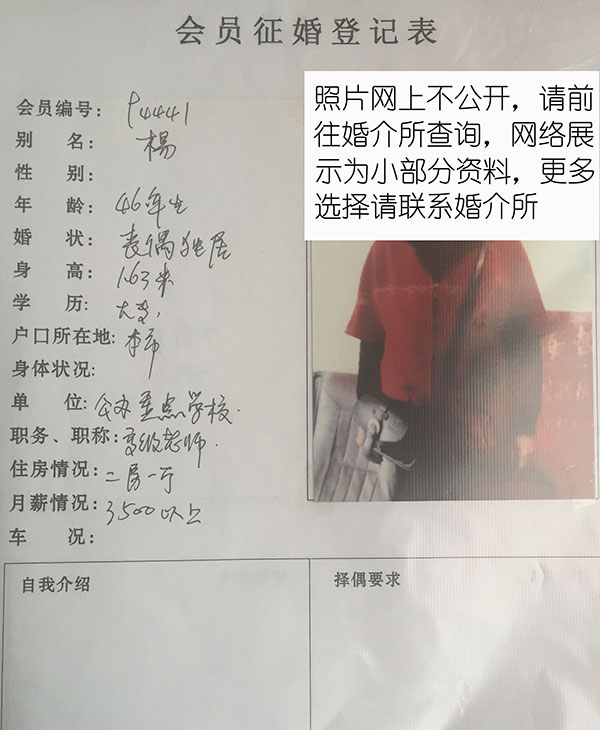 会员征婚登记表
会员编号：P4441
别 名：楊
性 别：
年 龄：46年生
婚 状：丧偶独居
身 高：1.63米
学 历：大专
户口所在地：本市
身体状况：
单 位：公办重点学校.
职务、职称：高级老师.
住房情况：二房一厅
月薪情况：3500以上
车 况：
照片网上不公开，请前
往婚介所查询，网络展
示为小部分资料，更多
选择请联系婚介所
自我介绍
择偶要求